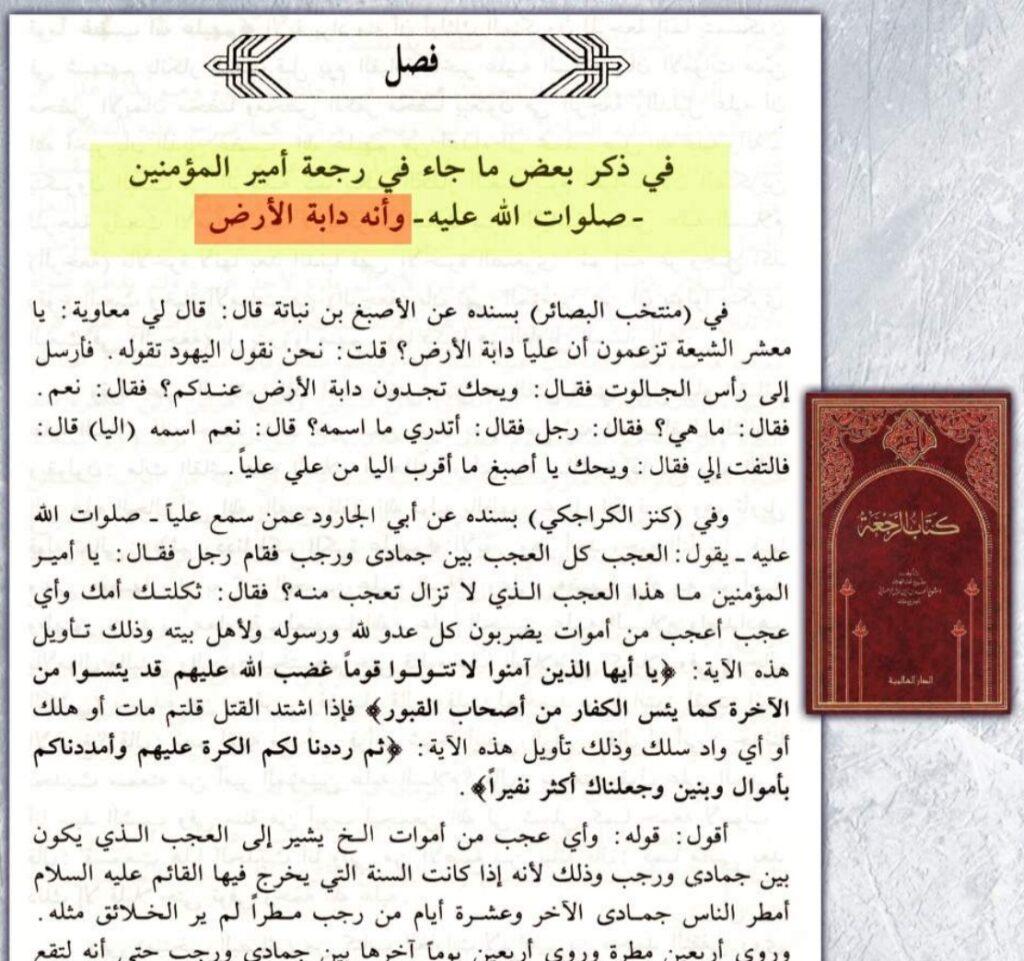 فصل
في ذكر بعض ما جاء في رجعة أمير المؤمنين
ـ صلوات الله عليه ـ وأنه دابة الأرض
في (منتخب البصائر) بسنده عن الأصبغ بن نباتة قال: قال لي معاوية: يا
معشر الشيعة تزعمون أن علياً دابة الأرض؟ قلت: نحن نقول اليهود تقوله. فأرسل
إلى رأس الجالوت فقال: ويحك تجدون دابة الأرض عندكم؟ فقال: نعم.
فقال: ما هي؟ فقال: رجل فقال: أتدري ما اسمه؟ قال: نعم اسمه (اليا) قال:
فالتفت إلي فقال: ويحك يا أصبغ ما أقرب اليا من علي علياً.
وفي (كنز الكراجكي) بسنده عن أبي الجارود عمن سمع علياً ـ صلوات الله
عليه ـ يقول: العجب كل العجب بين جمادى ورجب فقام رجل فقال: يا أمير
المؤمنين ما هذا العجب الذي لا تزال تعجب منه؟ فقال: ثكلتك أمك وأي
عجب أعجب من أموات يضربون كل عدو لله ورسوله ولأهل بيته وذلك تأويل
هذه الآية: ﴿يا أيها الذين آمنوا لا تتولوا قوماً غضب الله عليهم قد يئسوا من
الآخرة كما يئس الكفار من أصحاب القبور﴾ فإذا اشتد القتل قلتم مات أو هلك
أو أي واد سلك وذلك تأويل هذه الآية: ﴿ثم رددنا لكم الكرة عليهم وأمددناكم
بأموال وبنين وجعلناك أكثر نفيراً﴾.
أقول: قوله: وأي عجب من أموات الخ يشير إلى العجب الذي يكون
بين جمادى ورجب وذلك لأنه إذا كانت السنة التي يخرج فيها القائم عليه السلام
أمطر الناس جمادى الآخر وعشرة أيام من رجب مطراً لم ير الخلائق مثله.
وروي أربعين مطرة وروي أربعين يوماً آخرها بين جمادى ورجب حتى أنه لتقع
كتاب الرجعة
الدار العالمية